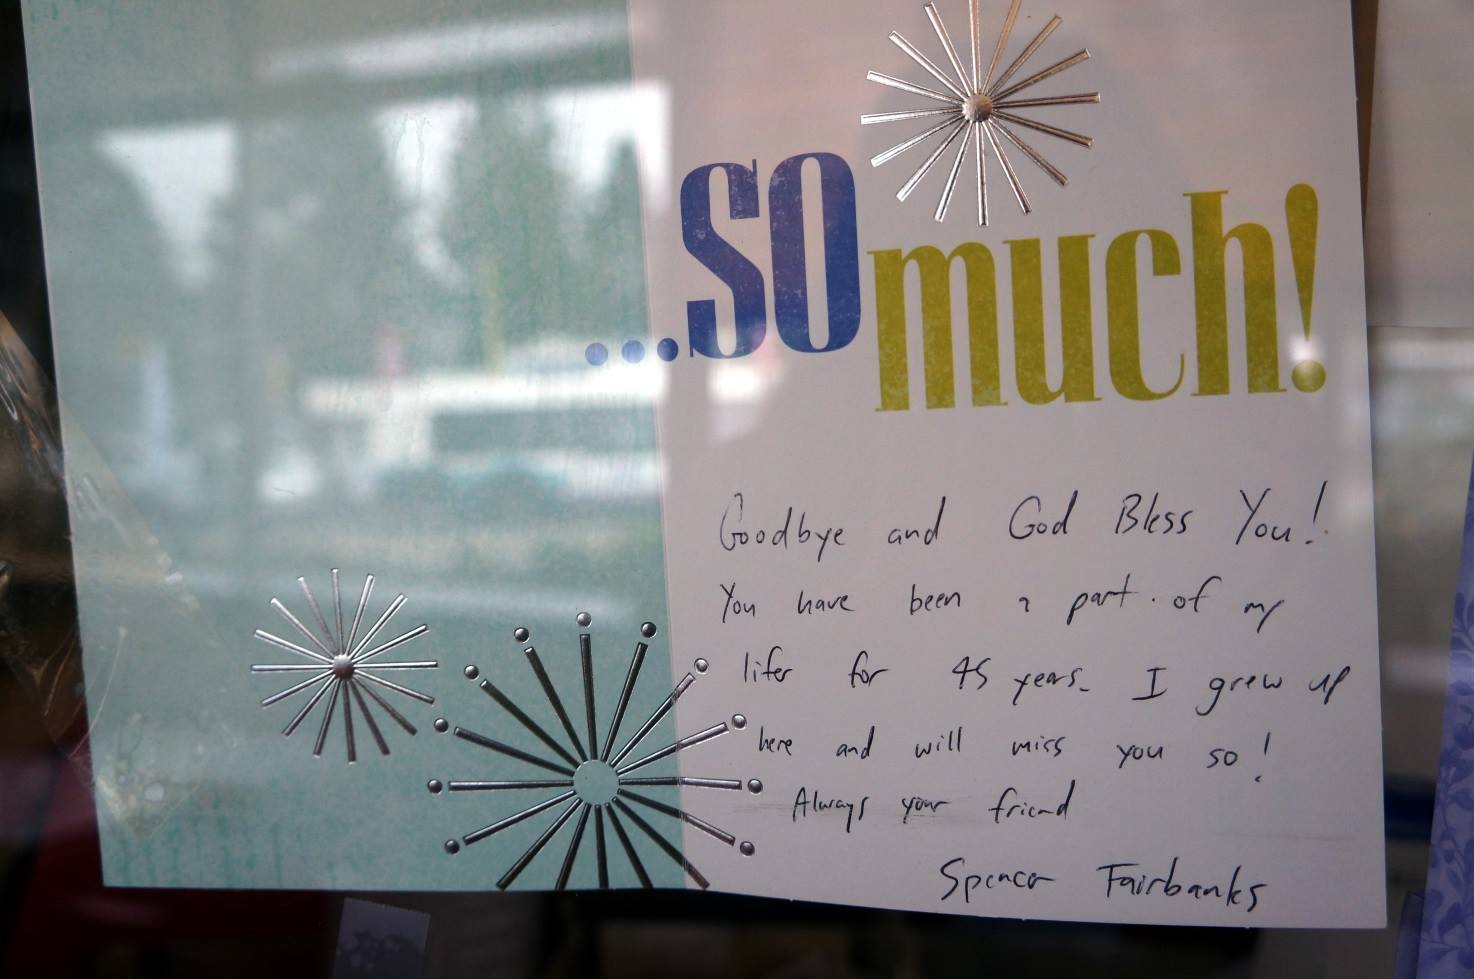 ...SO
much!
Goodbye and God Bless You!
You have been a part of my
life for 45 years. I grew up
here and will miss you so!
Always your friend
Spencer Fairbanks